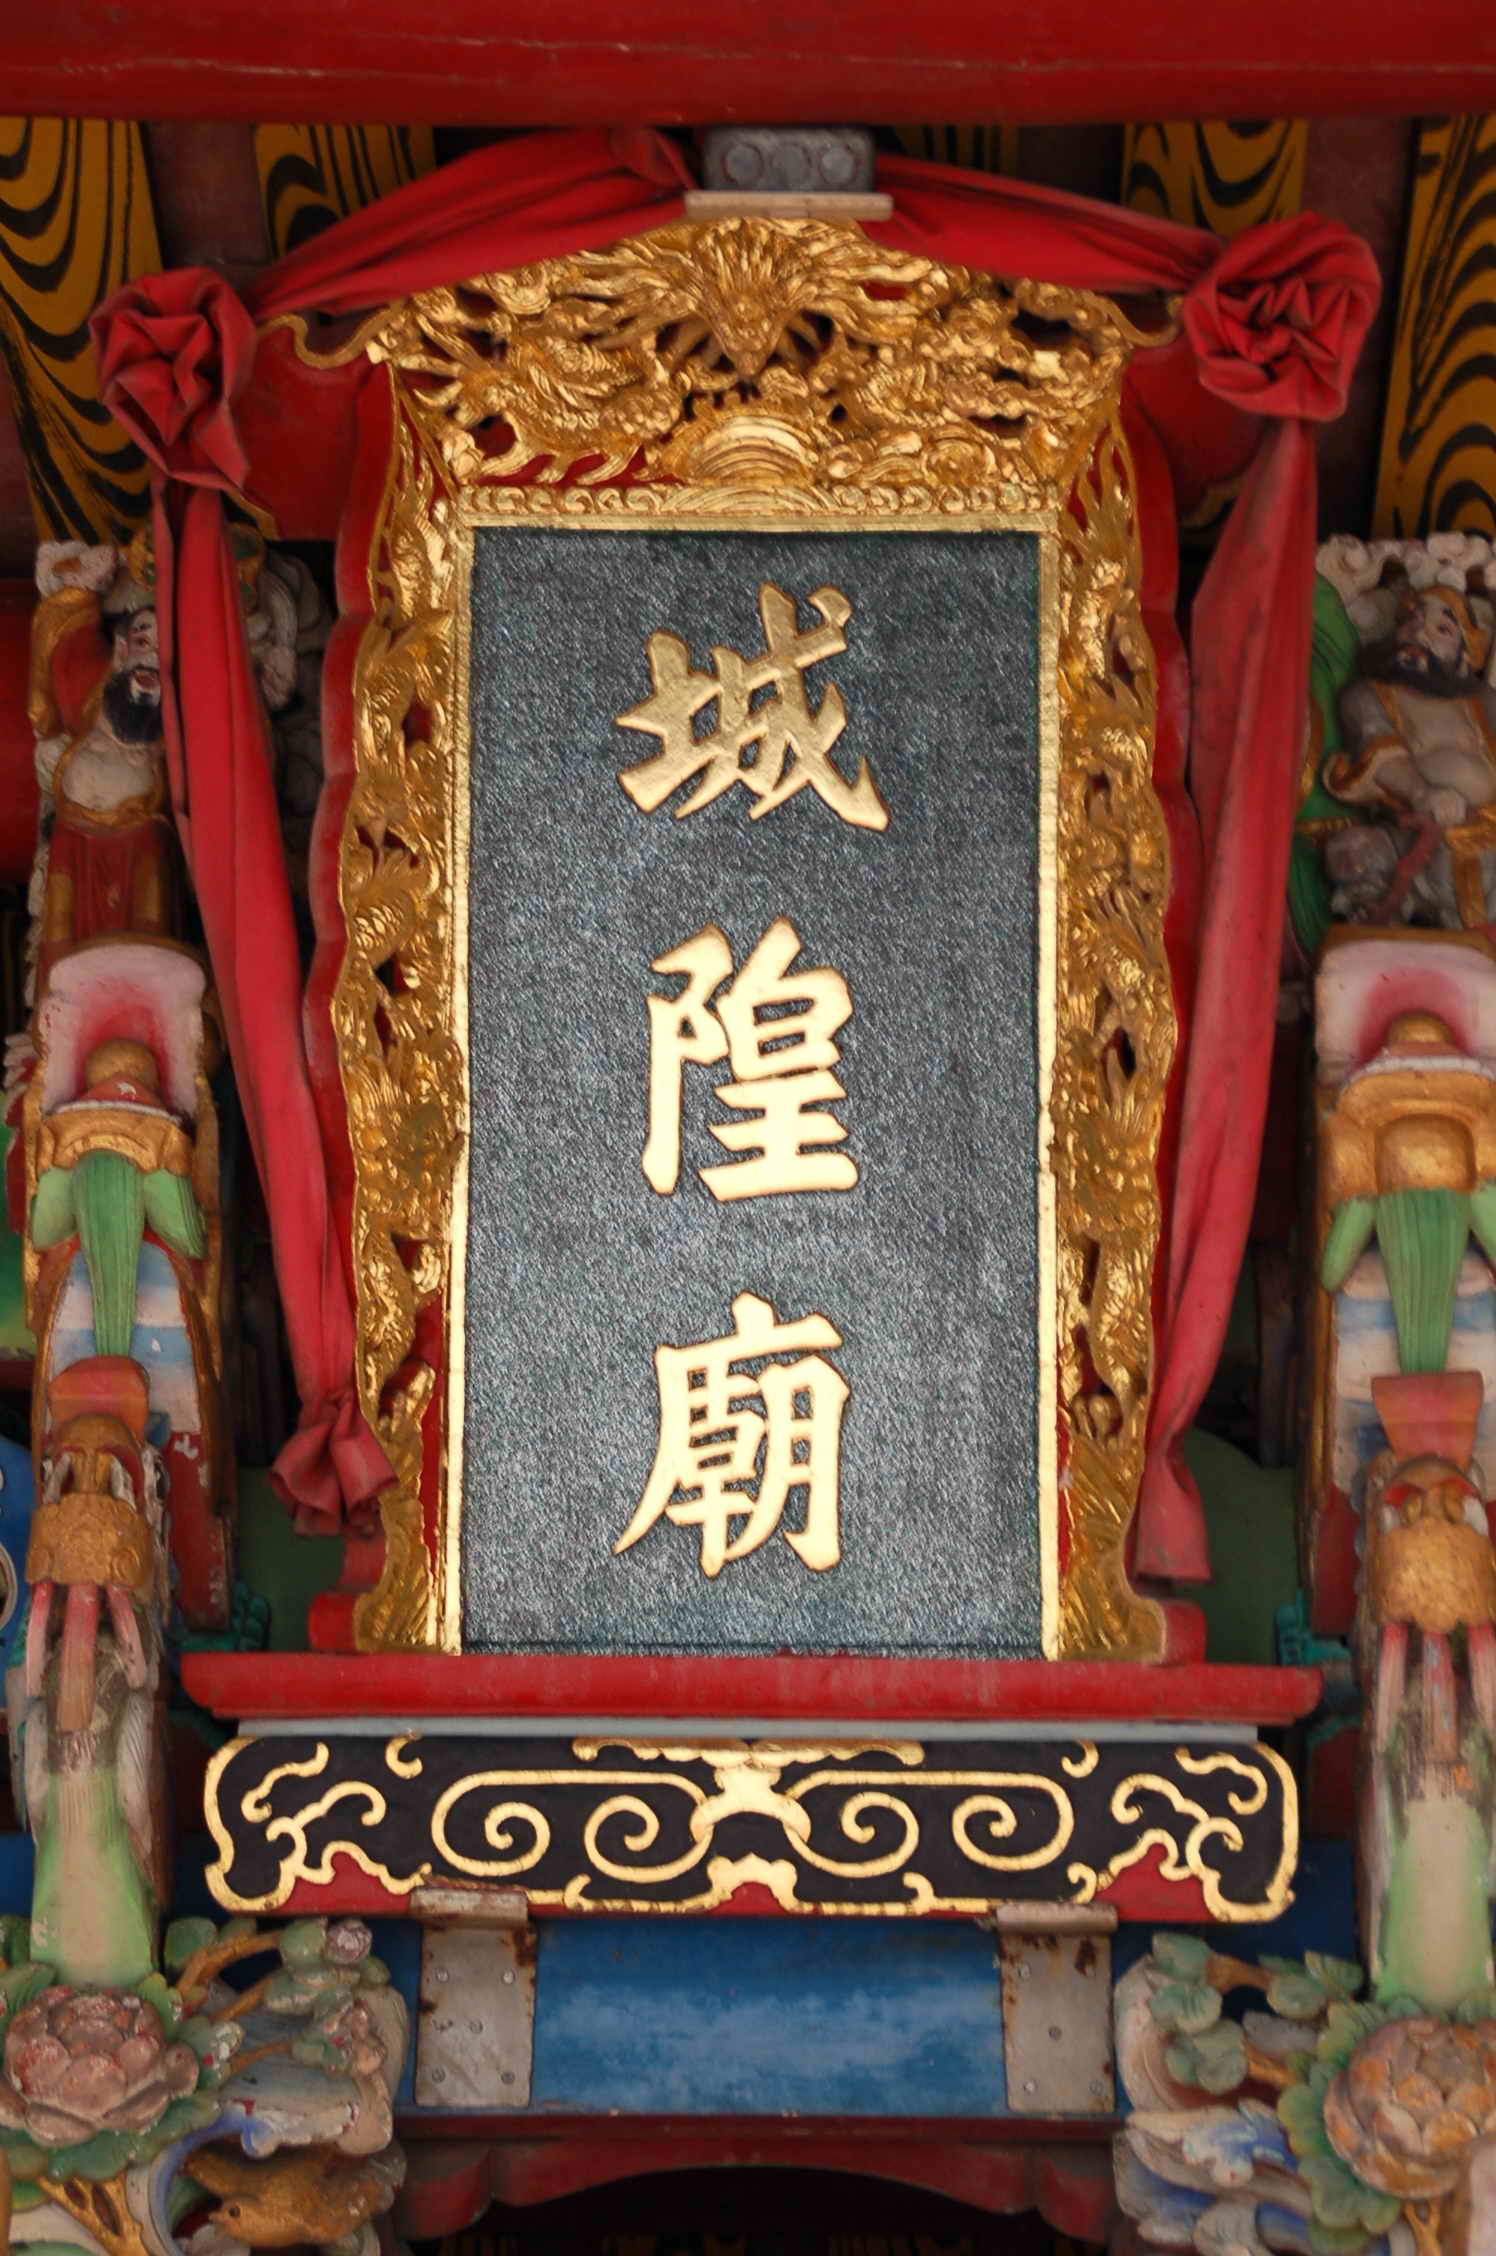 城隍廟